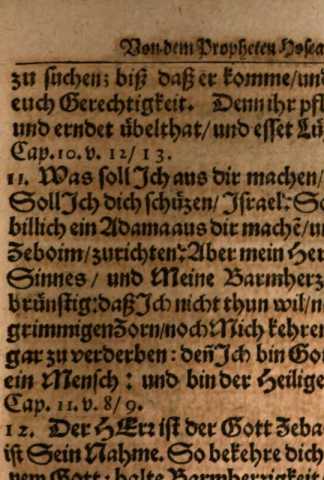 Von dem Propheten Hosea
zu suchen; biß daß er komme/ und
euch Gerechtigkeit. Denn ihr pfl
und erndet übelthat/ und esset Lü
Cap. 10. v. 12/ 13.
11. Was soll Ich aus dir machen/
Soll Ich dich schützen/ Israel: So
billich ein Adama aus dir machẽ/ un
Zeboim/ zurichten: Aber mein Her
Sinnes/ und Meine Barmherz
brünstig: daß Ich nicht thun wil/ n
grimmigen Zorn/ noch Mich kehren
gar zu verderben: deñ Ich bin Got
ein Mensch: und bin der Heilige
Cap. 11. v. 8/ 9.
12. Der HErr ist der Gott Zeba
ist Sein Nahme. So bekehre dich
Gott: halte Barmherzigkeit